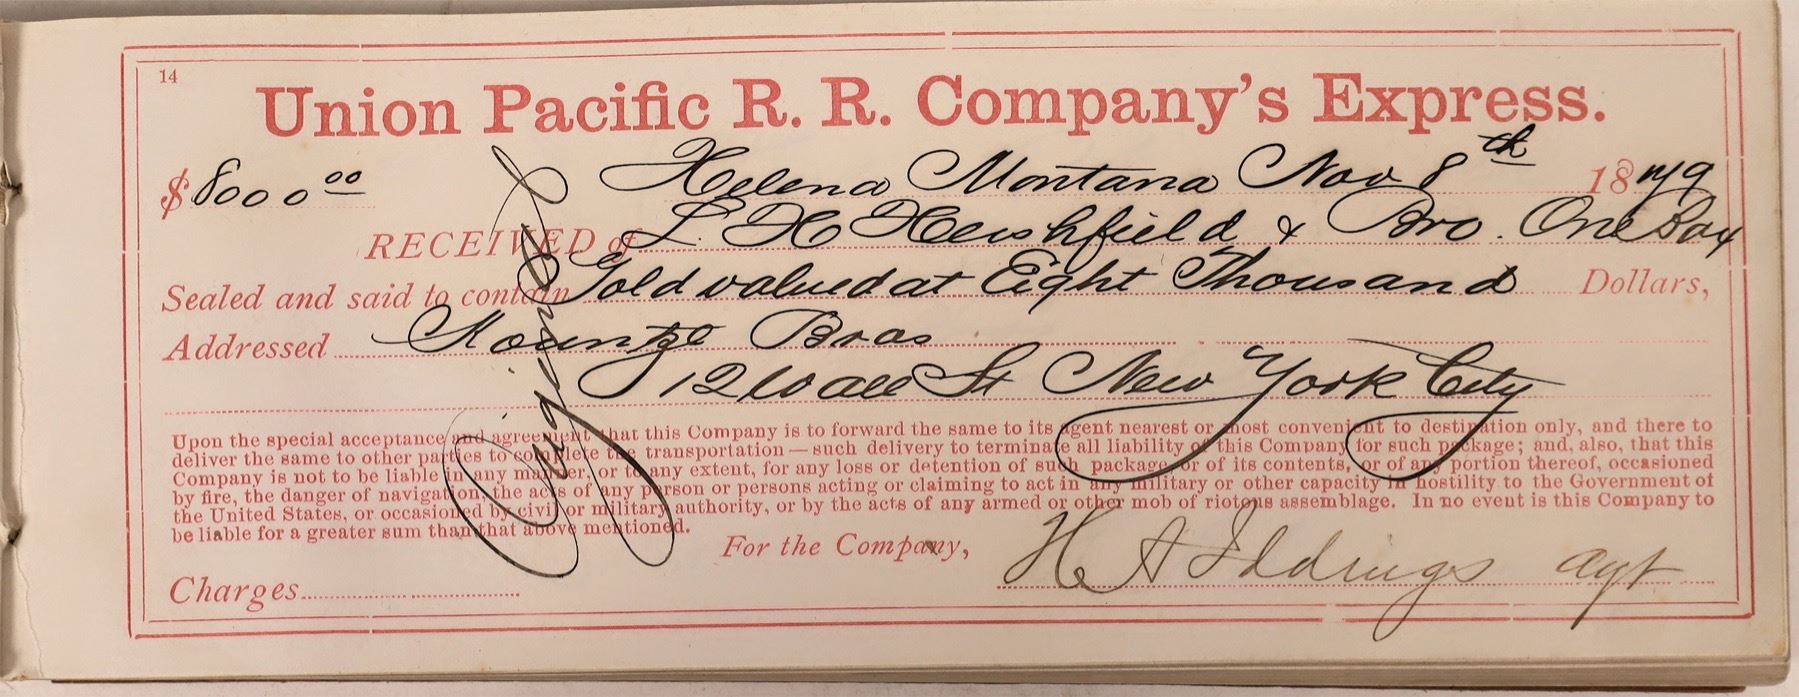 14
Union Pacific R. R. Company's Express.
$8000 00 Helena Montana Nov 8th 1879
RECEIVED of L. H. Hershfield & Bro. One Box
Sealed and said to contain Gold valued at Eight Thousand Dollars,
Addressed Kountze Bros
12 Wall St New York City
Upon the special acceptance and agreement that this Company is to forward the same to its agent nearest or most convenient to destination only, and there to
deliver the same to other parties to complete the transportation — such delivery to terminate all liability of this Company for such package; and, also, that this
Company is not to be liable in any manner, or to any extent, for any loss or detention of such package or of its contents, or of any portion thereof, occasioned
by fire, the danger of navigation, the acts of any person or persons acting or claiming to act in any military or other capacity in hostility to the Government of
the United States, or occasioned by civil or military authority, or by the acts of any armed or other mob of riotous assemblage. In no event is this Company to
be liable for a greater sum than that above mentioned.
For the Company, H A Iddings agt
Charges
Original